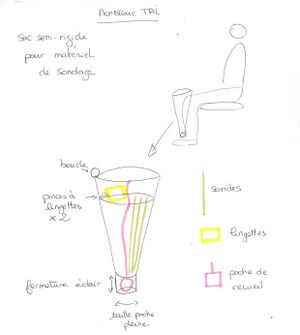 Monsieur TAI
Sac semi-rigide
pour matériel
de sondage
boucle
pinces à
lingettes
x2
sondes
lingettes
fermeture éclair
poche de
recueil
taille poche
pleine